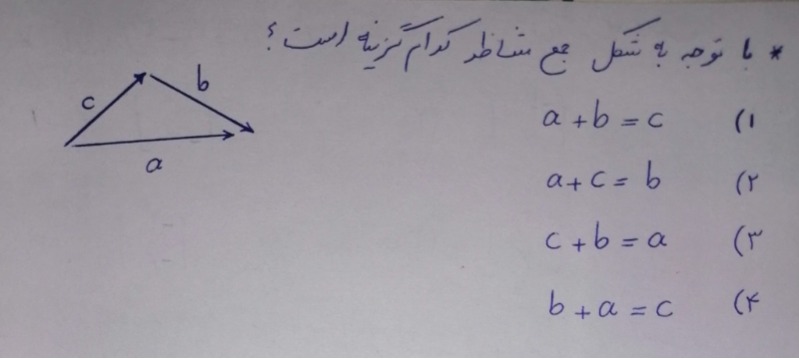 * با توجه به شکل جمع متناظر کدام گزینه است؟
c
b
a
۱) a + b = c
۲) a + c = b
۳) c + b = a
۴) b + a = c